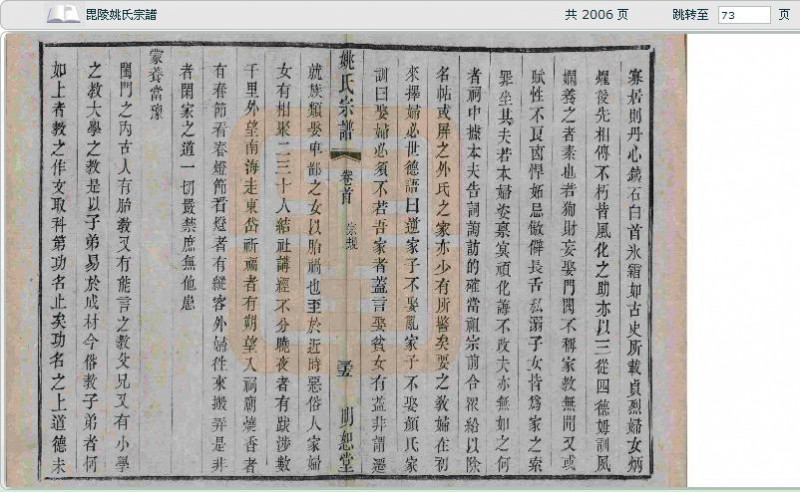 毘陵姚氏宗譜
共 2006 页
跳转至 73 页
寡居則丹心鐵石白首氷霜如古史所載貞烈婦女炳
燿後先相傳不朽皆風化之助亦以三從四德姆訓風
嫻養之者素也若狥財妄娶門閥不稱家教無聞又或
賦性不夏嚚悍妬忌傲僻長舌私溺子女皆爲家之索
罪坐其夫若本婦委禀㝠頑化誨不改夫亦無如之何
者祠中據本夫告詞詢訪的確當祖宗前合衆給以除
名帖或屏之外氏之家亦少有所警矣要之敎婦在初
來擇婦必世德語曰逆家子不娶亂家子不娶顏氏家
訓曰娶婦必須不若吾家者蓋言娶貧女有益非謂遷
就族類娶卑鄙之女以胎禍也至於近時惡俗人家婦
姚氏宗譜
卷首
宗規
明恕堂
女有相聚二三十人結社講經不分曉夜者有跋涉數
千里外望南海走東岱祈福者有朔望入祠廟燒香者
有春節看春燈節看燈者有縱容外婦往來搬弄是非
者閑家之道一切嚴禁庶無他患
蒙養當豫
閨門之内古人有胎教又有能言之教父兄又有小學
之教大學之教是以子弟易於成材今俗教子弟者何
如上者教之作文取科第功名止矣功名之上道德未